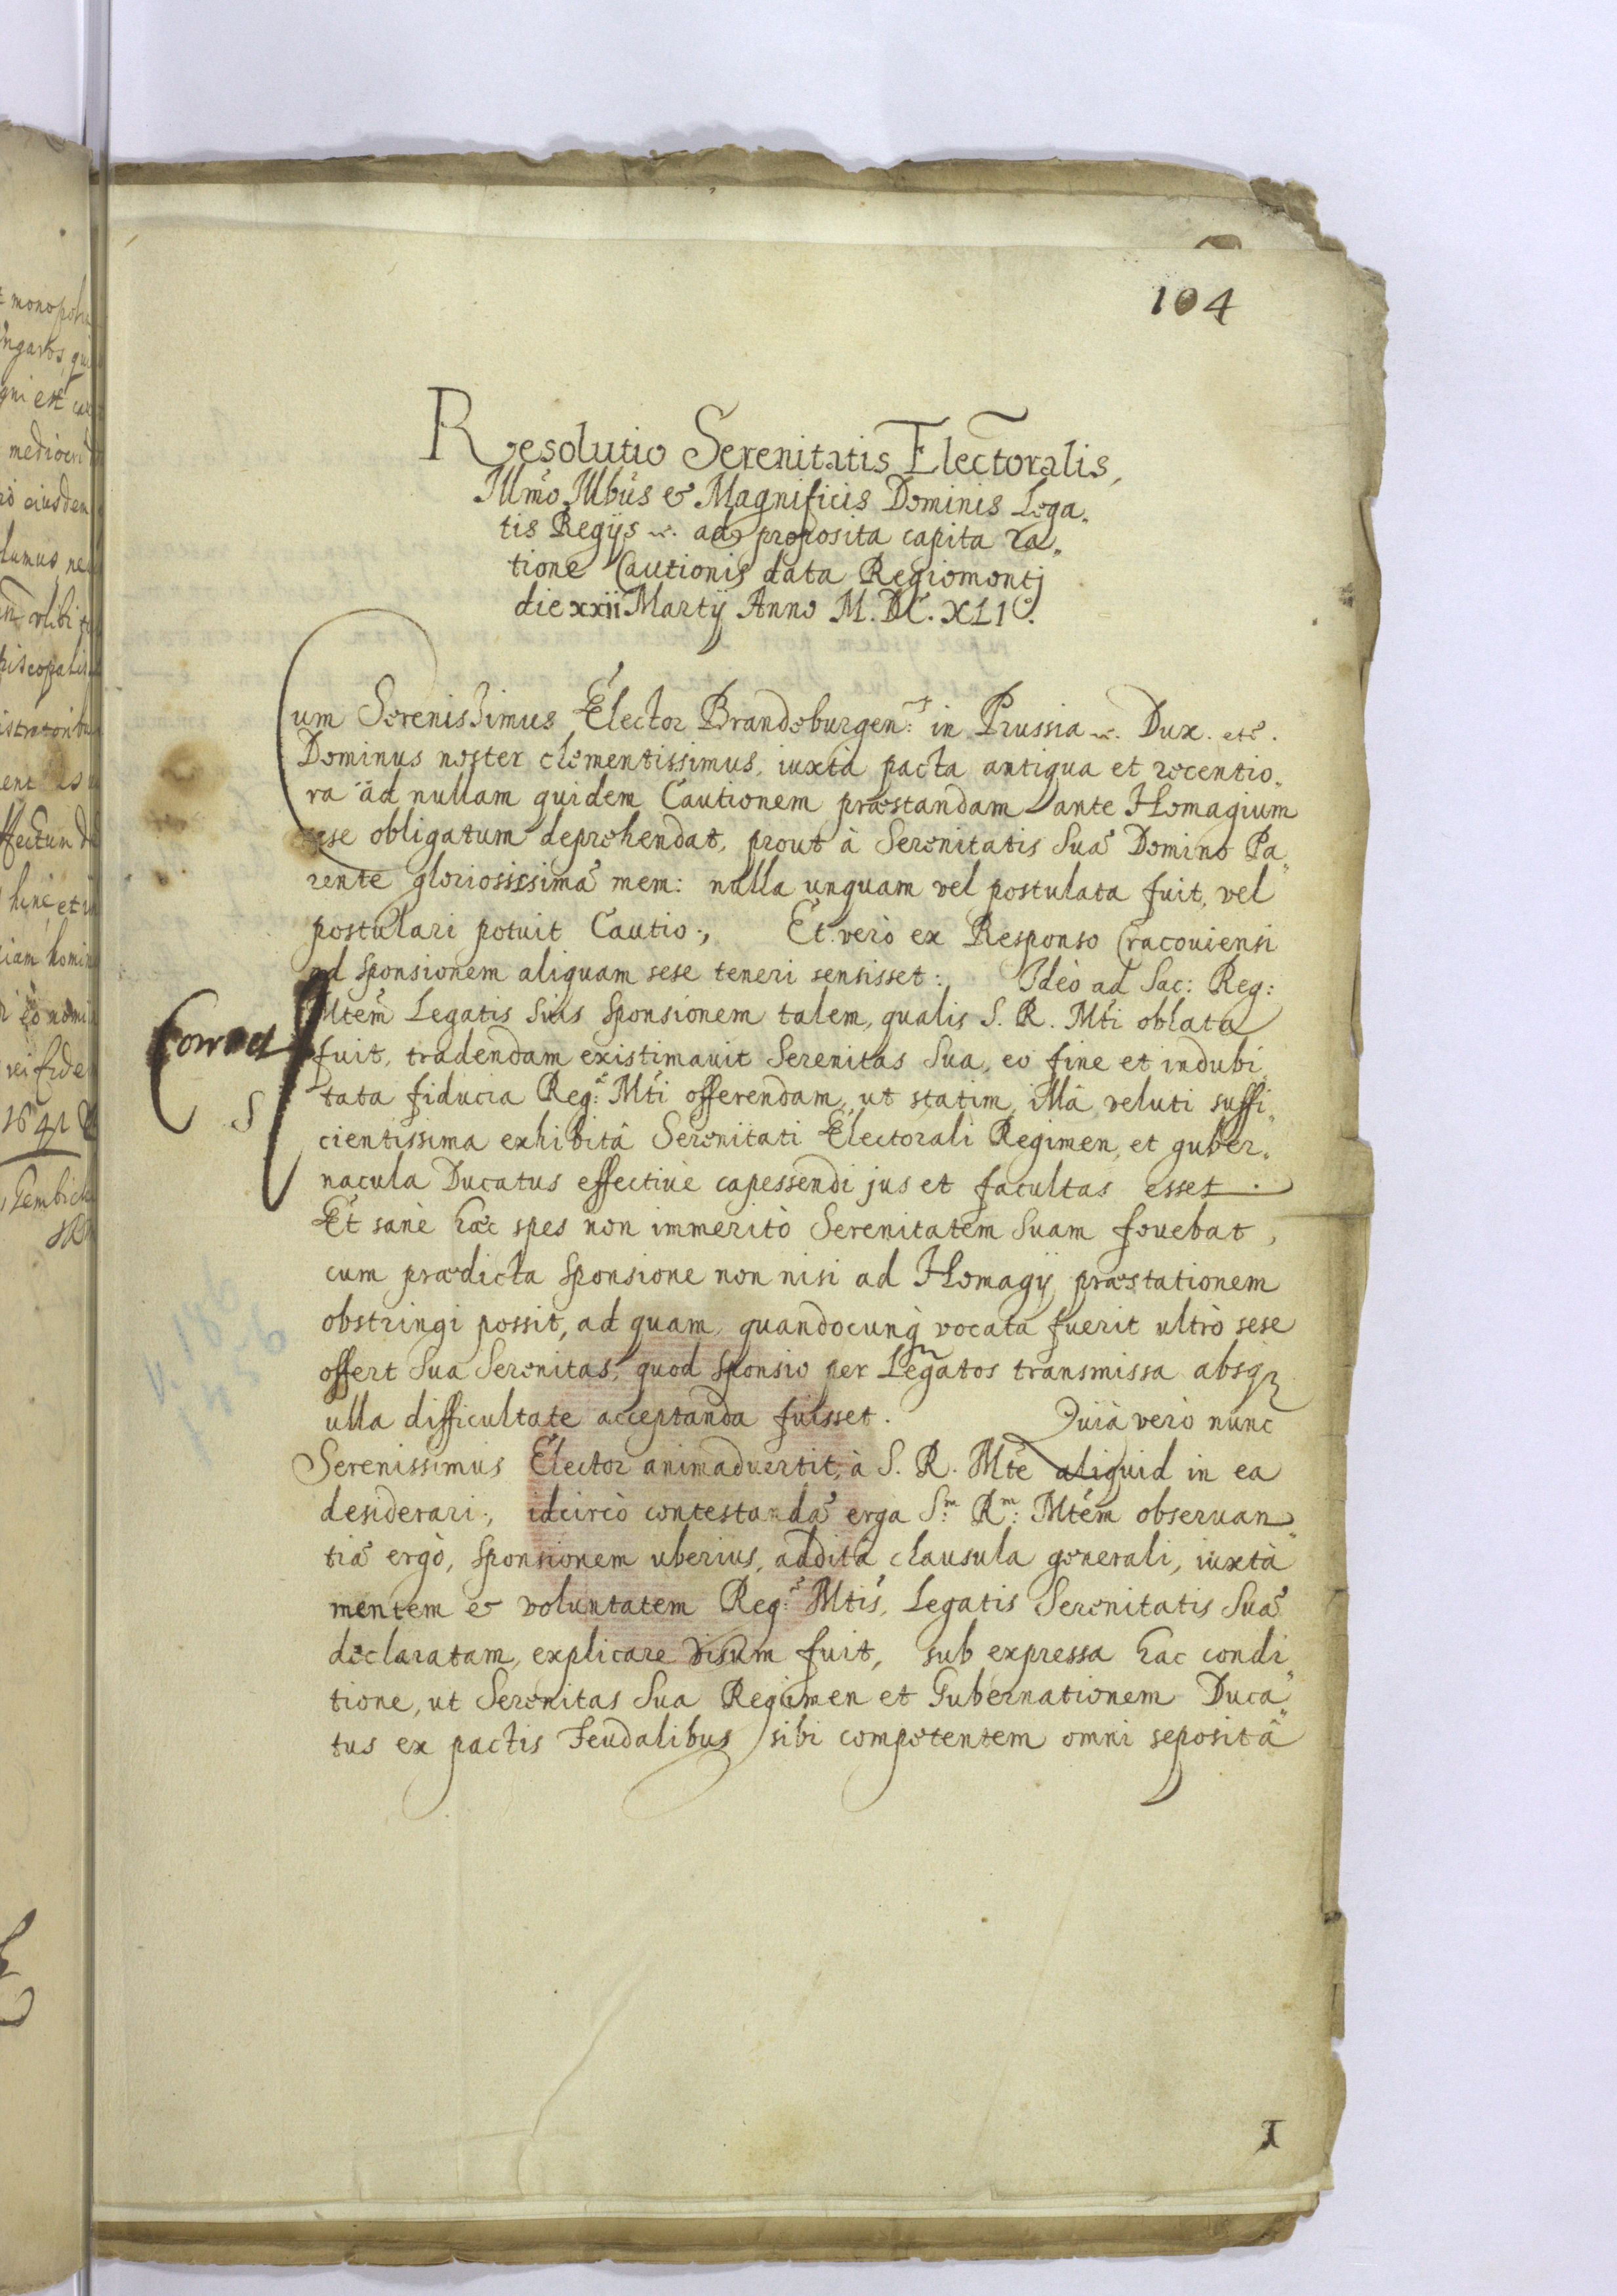 104
Resolutio Serenitatis Electoralis,
Illmo Illbus & Magnificis Dominis Lega„
tis Regijs &c. ad proposita capita ra„
tione Cautionis data Regiomontj
die xxii Martij Anno M.DC.XLI°.
Cum Serenissimus Elector Brandeburgen: in Prussia &c. Dux. etc.
Dominus noster clementissimus, iuxtà pacta antiqua et recentio„
ra ad nullam quidem Cautionem præstandam ante Homagium
sese obligatum deprehendat, prout à Serenitatis Suæ Domino Pa„
rente gloriosissimæ mem: nulla unquam vel postulata fuit, vel
postulari potuit Cautio., Et verò ex Responso Cracouiensi
ad Sponsionem aliquam sese teneri sensisset: Ideò ad Sac: Reg:
Mtem Legatis Suis Sponsionem talem, qualis S. R. Mti oblata
fuit, tradendam existimauit Serenitas Sua, eo fine et indubi
tata fiducia Reg: Mti offerendam, ut statim, illâ veluti suffi„
cientissima exhibitâ Serenitati Electorali Regimen, et guber„
nacula Ducatus effectiuè capessendi jus et facultas esset.
Et sanè hæc spes non immeritò Serenitatem Suam fouebat,
cum prædicta Sponsione non nisi ad Homagij præstationem
obstringi possit, ad quam, quandocunq vocata fuerit ultrò sese
offert Sua Serenitas, quod Sponsio per Legatos transmissa absq
ulla difficultate acceptanda fuisset. Quià verò nunc
Serenissimus Elector animaduertit, à S. R. Mte aliquid in ea
desiderari., idcircò contestandæ erga S:m R:m Mtem obseruan„
tiæ ergò, Sponsionem uberius, additâ clausula generali, iuxtà
mentem & voluntatem Reg: Mtis, Legatis Serenitatis Suæ
declaratam, explicare visum fuit, sub expressa hac condi„
tione, ut Serenitas Sua Regimen et Gubernationem Duca„
tus ex pactis Feudalibus sibi competentem omni sepositâ
1